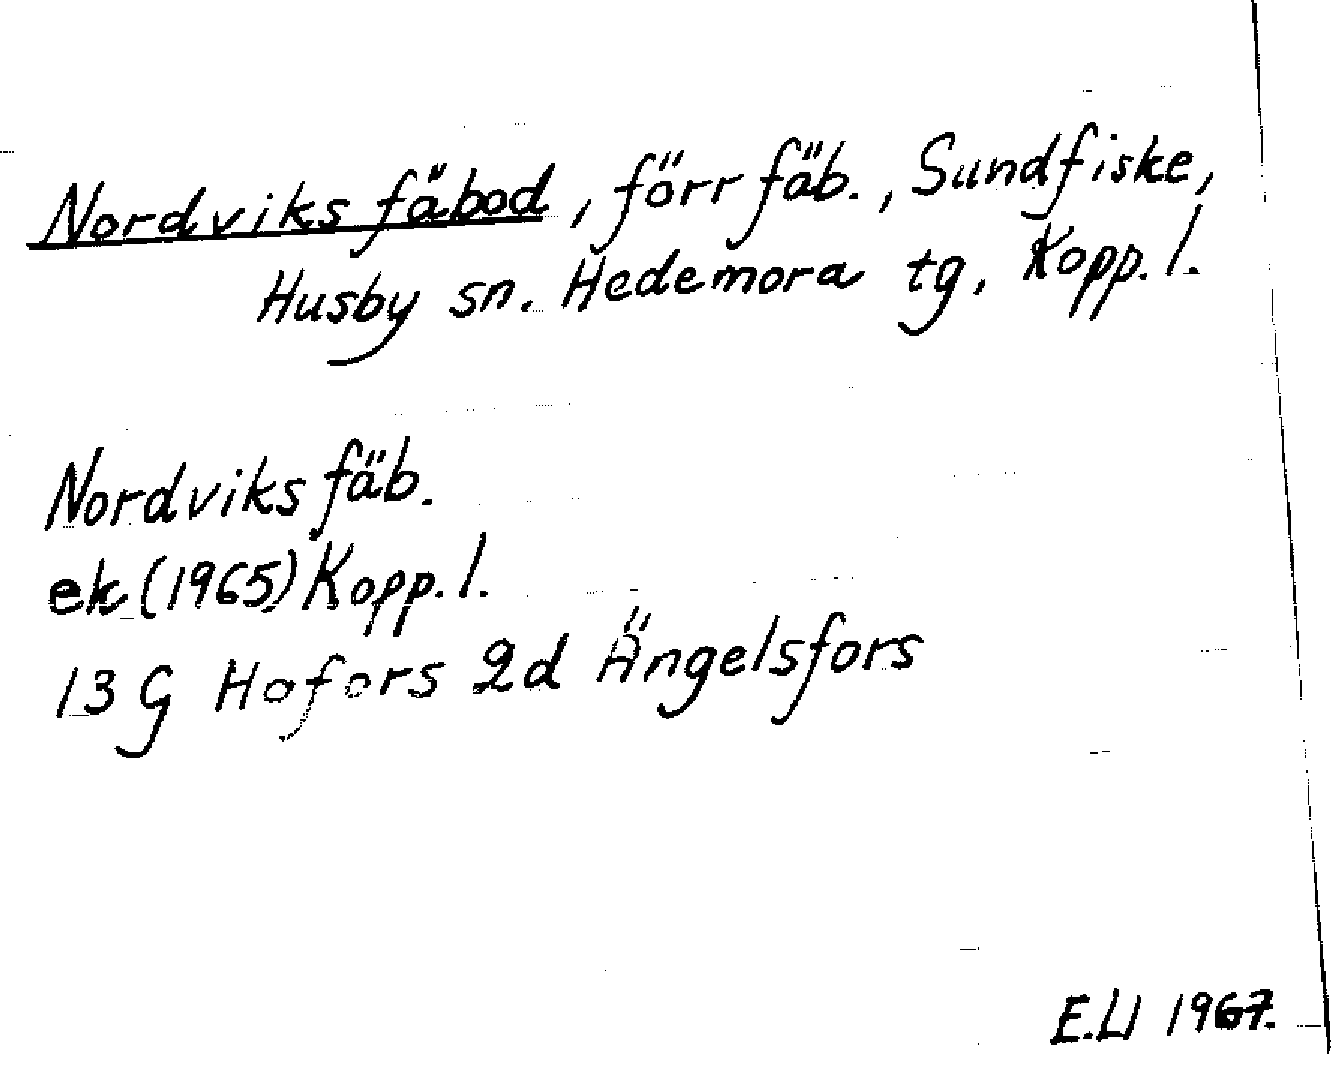 Nordviks fäbod, förr fäb., Sundfiske,
Husby sn. Hedemora tg, Kopp. l.
Nordviks fäb.
ek (1965) Kopp. l.
13 G Hofors 2d Ängelsfors
1967.